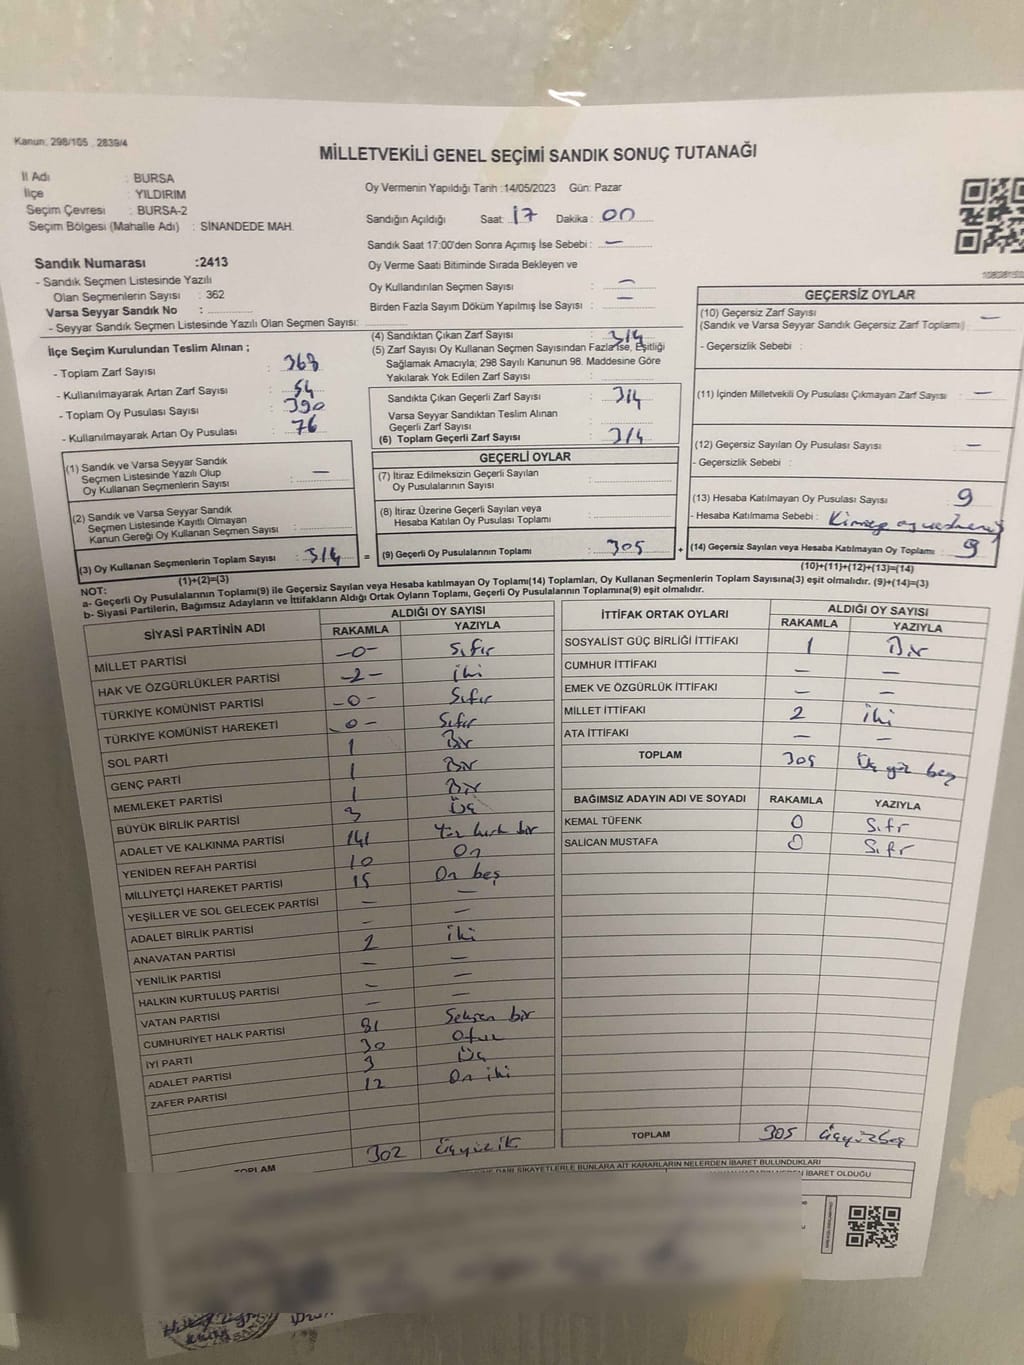 Kanun. 298/105 , 2839/4
MİLLETVEKİLİ GENEL SEÇİMİ SANDIK SONUÇ TUTANAĞI
İl Adı : BURSA
İlçe : YILDIRIM
Seçim Çevresi : BURSA-2
Seçim Bölgesi (Mahalle Adı) : SİNANDEDE MAH.
Sandık Numarası :2413
- Sandık Seçmen Listesinde Yazılı
Olan Seçmenlerin Sayısı : 362
Varsa Seyyar Sandık No :
- Seyyar Sandık Seçmen Listesinde Yazılı Olan Seçmen Sayısı:
Oy Vermenin Yapıldığı Tarih :14/05/2023 Gün: Pazar
Sandığın Açıldığı Saat: 17 Dakika : 00
Sandık Saat 17:00'den Sonra Açımış İse Sebebi : —
Oy Verme Saati Bitiminde Sırada Bekleyen ve
Oy Kullandırılan Seçmen Sayısı : —
Birden Fazla Sayım Döküm Yapılmış İse Sayısı : —
İlçe Seçim Kurulundan Teslim Alınan ;
- Toplam Zarf Sayısı : 368
- Kullanılmayarak Artan Zarf Sayısı : 54
- Toplam Oy Pusulası Sayısı : 390
- Kullanılmayarak Artan Oy Pusulası : 76
(1) Sandık ve Varsa Seyyar Sandık
Seçmen Listesinde Yazılı Olup
Oy Kullanan Seçmenlerin Sayısı : —
(2) Sandık ve Varsa Seyyar Sandık
Seçmen Listesinde Kayıtlı Olmayan
Kanun Gereği Oy Kullanan Seçmen Sayısı :
(3) Oy Kullanan Seçmenlerin Toplam Sayısı : 314 =
(1)+(2)=(3)
(4) Sandıktan Çıkan Zarf Sayısı : 314
(5) Zarf Sayısı Oy Kullanan Seçmen Sayısından Fazla İse, Eşitliği
Sağlamak Amacıyla; 298 Sayılı Kanunun 98. Maddesine Göre
Yakılarak Yok Edilen Zarf Sayısı :
Sandıkta Çıkan Geçerli Zarf Sayısı : 314
Varsa Seyyar Sandıktan Teslim Alınan
Geçerli Zarf Sayısı :
(6) Toplam Geçerli Zarf Sayısı : 314
GEÇERLİ OYLAR
(7) İtiraz Edilmeksizin Geçerli Sayılan
Oy Pusulalarının Sayısı :
(8) İtiraz Üzerine Geçerli Sayılan veya
Hesaba Katılan Oy Pusulası Toplamı :
(9) Geçerli Oy Pusulalarının Toplamı : 305 +
GEÇERSİZ OYLAR
(10) Geçersiz Zarf Sayısı
(Sandık ve Varsa Seyyar Sandık Geçersiz Zarf Toplamı) : —
- Geçersizlik Sebebi :
(11) İçinden Milletvekili Oy Pusulası Çıkmayan Zarf Sayısı : —
(12) Geçersiz Sayılan Oy Pusulası Sayısı : —
- Geçersizlik Sebebi :
(13) Hesaba Katılmayan Oy Pusulası Sayısı : 9
- Hesaba Katılmama Sebebi :
(14) Geçersiz Sayılan veya Hesaba Katılmayan Oy Toplamı : 9
(10)+(11)+(12)+(13)=(14)
NOT:
a- Geçerli Oy Pusulalarının Toplamı(9) ile Geçersiz Sayılan veya Hesaba katılmayan Oy Toplamı(14) Toplamları, Oy Kullanan Seçmenlerin Toplam Sayısına(3) eşit olmalıdır. (9)+(14)=(3)
b- Siyasi Partilerin, Bağımsız Adayların ve İttifakların Aldığı Ortak Oyların Toplamı, Geçerli Oy Pusulalarının Toplamına(9) eşit olmalıdır.
SİYASİ PARTİNİN ADI ALDIĞI OY SAYISI
RAKAMLA YAZIYLA
MİLLET PARTİSİ -0- Sıfır
HAK VE ÖZGÜRLÜKLER PARTİSİ -2- iki
TÜRKİYE KOMÜNİST PARTİSİ -0- Sıfır
TÜRKİYE KOMÜNİST HAREKETİ -0- Sıfır
SOL PARTİ 1 Bir
GENÇ PARTİ 1 Bir
MEMLEKET PARTİSİ 1 Bir
BÜYÜK BİRLİK PARTİSİ 3 Üç
ADALET VE KALKINMA PARTİSİ 141 Yüz kırk bir
YENİDEN REFAH PARTİSİ 10 On
MİLLİYETÇİ HAREKET PARTİSİ 15 On beş
YEŞİLLER VE SOL GELECEK PARTİSİ – —
ADALET BİRLİK PARTİSİ – —
ANAVATAN PARTİSİ 2 iki
YENİLİK PARTİSİ – —
HALKIN KURTULUŞ PARTİSİ – —
VATAN PARTİSİ – —
CUMHURİYET HALK PARTİSİ 81 Seksen bir
İYİ PARTİ 30 Otuz
ADALET PARTİSİ 3 Üç
ZAFER PARTİSİ 12 On iki
TOPLAM 302 Üçyüziki
İTTİFAK ORTAK OYLARI ALDIĞI OY SAYISI
RAKAMLA YAZIYLA
SOSYALİST GÜÇ BİRLİĞİ İTTİFAKI 1 Bir
CUMHUR İTTİFAKI – —
EMEK VE ÖZGÜRLÜK İTTİFAKI – —
MİLLET İTTİFAKI 2 iki
ATA İTTİFAKI – —
TOPLAM 305 Üç yüz beş
BAĞIMSIZ ADAYIN ADI VE SOYADI RAKAMLA YAZIYLA
KEMAL TÜFENK 0 Sıfr
SALİCAN MUSTAFA 0 Sıfr
TOPLAM 305 Üçyüzbeş
ŞİKAYETLERLE BUNLARA AİT KARARLARIN NELERDEN İBARET BULUNDUKLARI
İBARET OLDUĞU